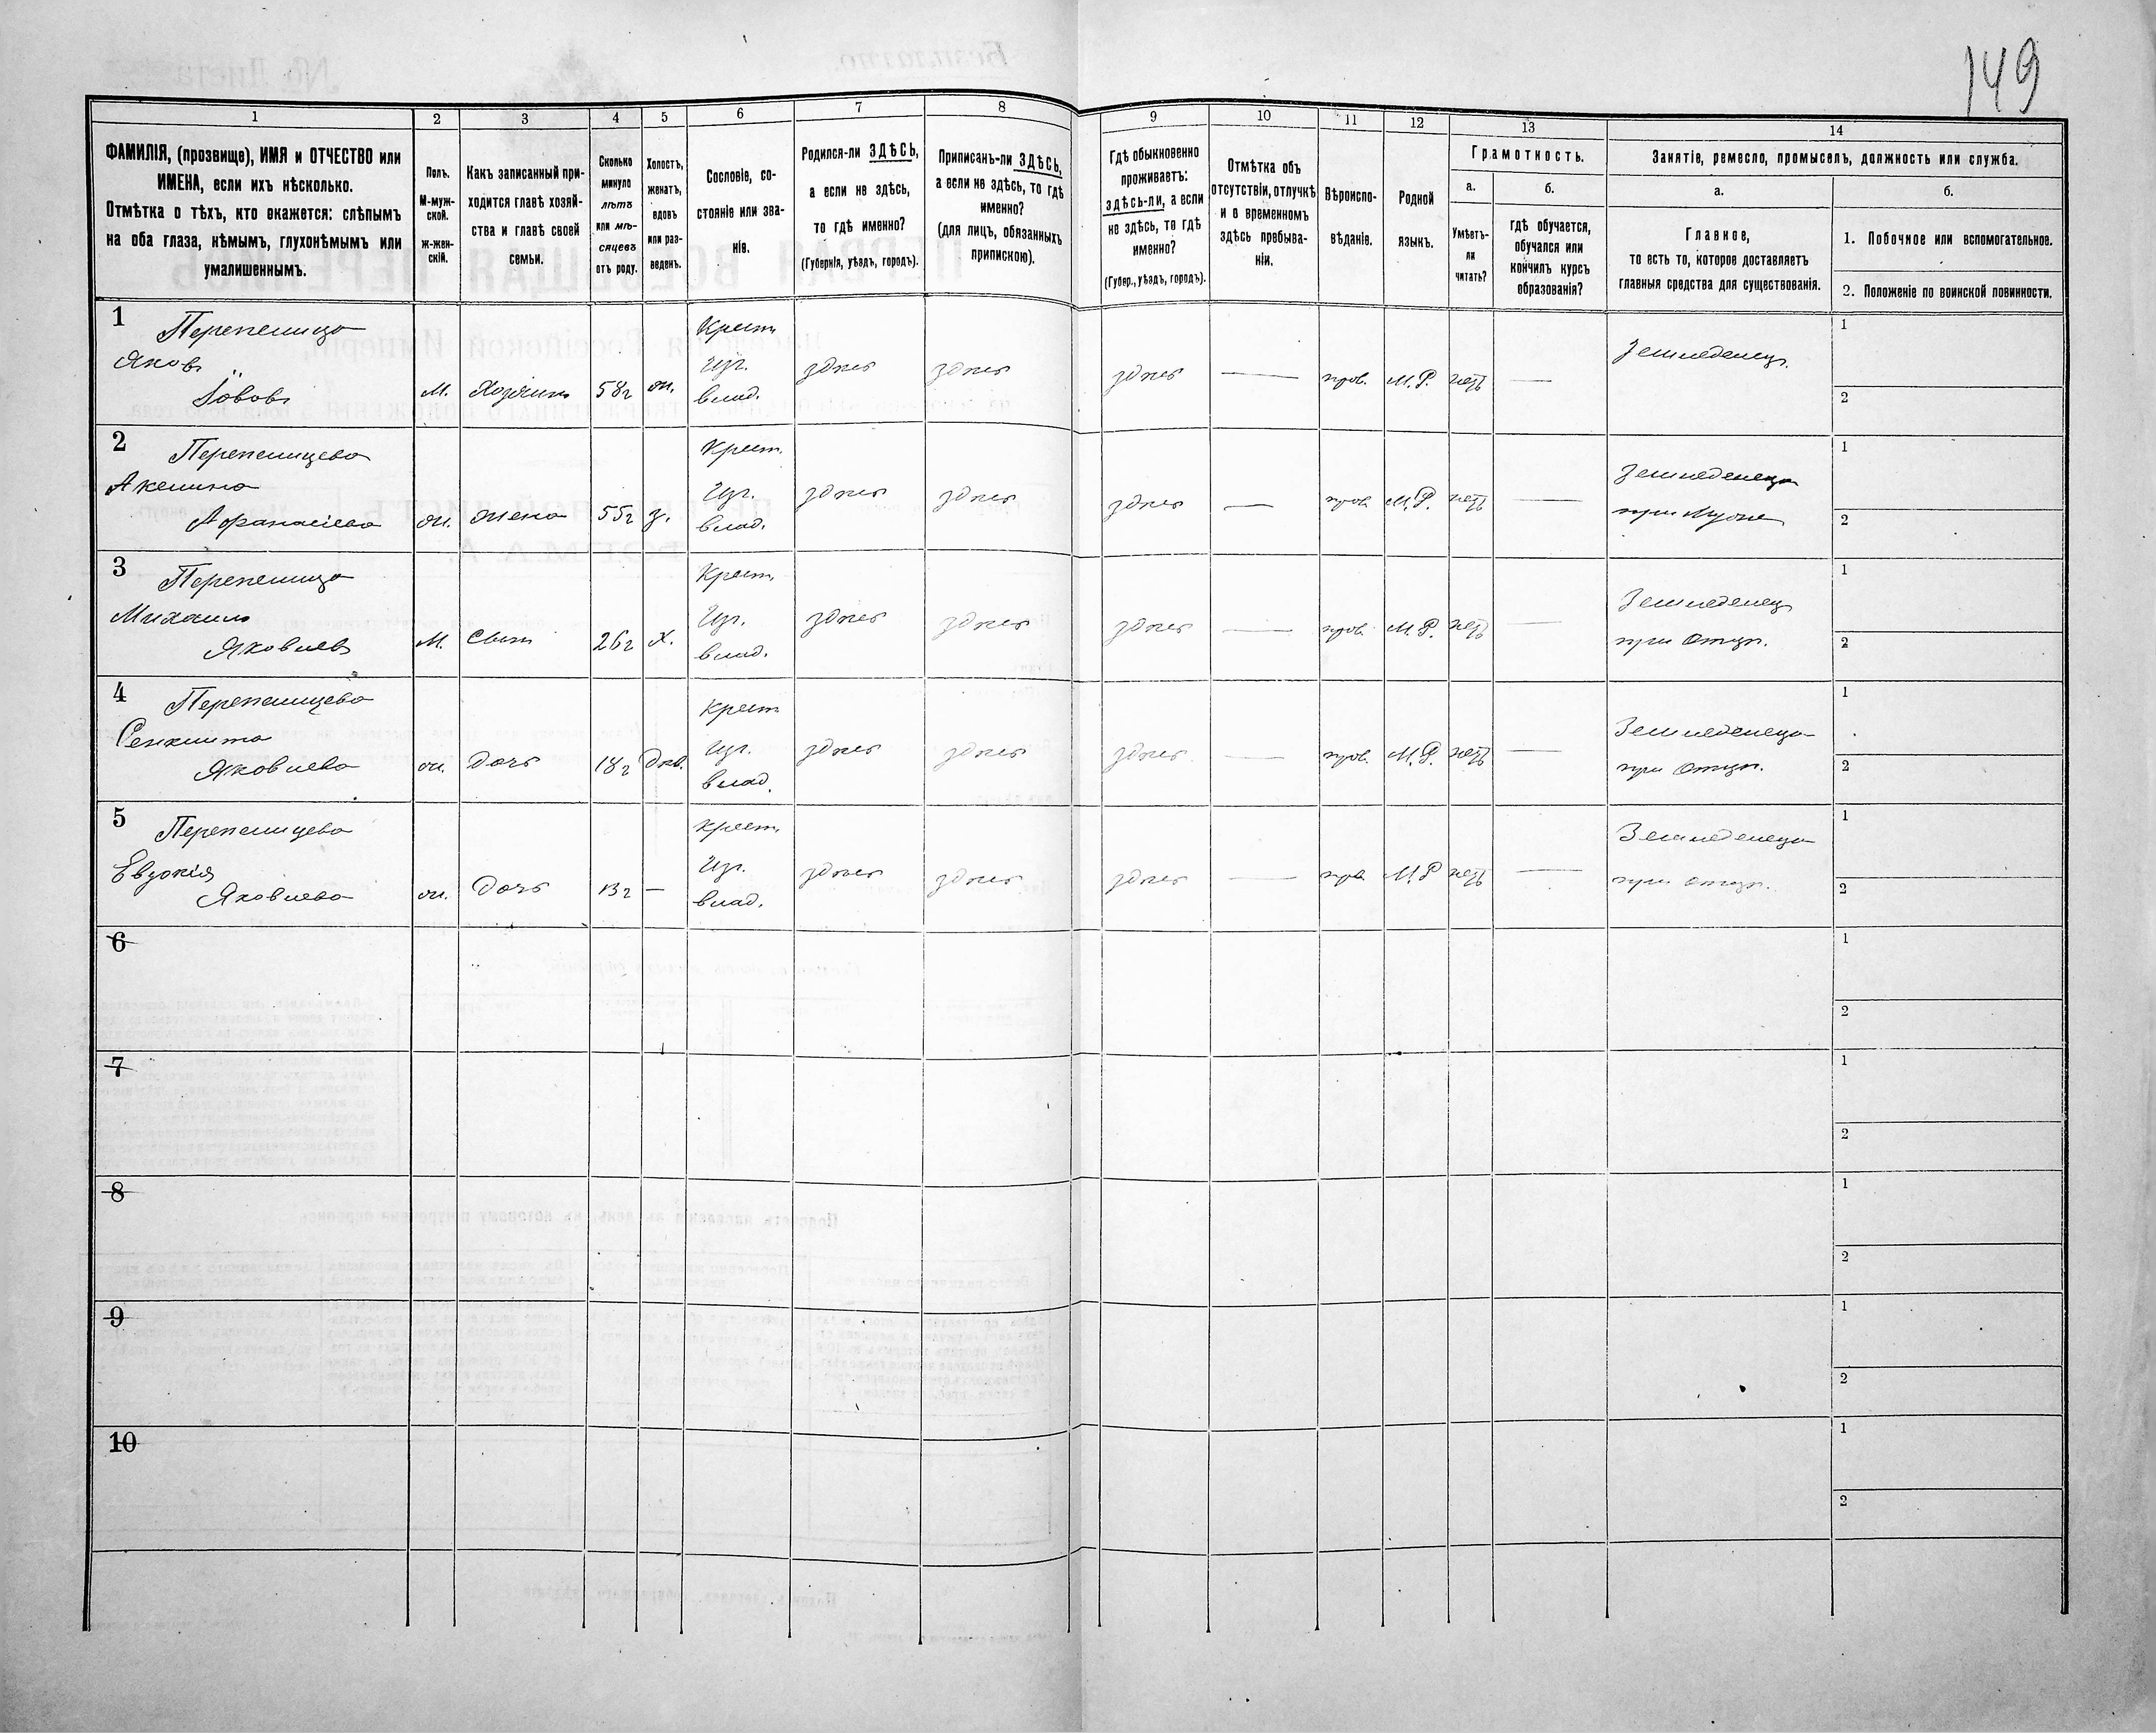 149
1 2 3 4 5 6 7 8 9 10 11 12 13 14
ФАМИЛІЯ, (прозвище), ИМЯ и ОТЧЕСТВО или
ИМЕНА, если ихъ нѣсколько.
Отмѣтка о тѣхъ, кто окажется: слѣпымъ
на оба глаза, нѣмымъ, глухонѣмымъ или
умалишеннымъ.
Полъ.
М-муж-
ской.
ж-жен-
скій.
Какъ записанный при-
ходится главѣ хозяй-
ства и главѣ своей
семьи.
Сколько
минуло
лѣтъ
или мѣ-
сяцевъ
отъ роду.
Холостъ,
женатъ,
вдовъ
или раз-
веденъ.
Сословіе, со-
стояніе или зва-
ніе.
Родился-ли ЗДѢСЬ,
а если не здѣсь,
то гдѣ именно?
(Губернія, уѣздъ, городъ).
Приписанъ-ли ЗДѢСЬ,
а если не здѣсь, то гдѣ
именно?
(для лицъ, обязанныхъ
припискою).
Гдѣ обыкновенно
проживаетъ:
здѣсь-ли, а если
не здѣсь, то гдѣ
именно?
(Губер., уѣздъ, городъ).
Отмѣтка объ
отсутствіи, отлучкѣ
и о временномъ
здѣсь пребыва-
ніи.
Вѣроиспо-
вѣданіе.
Родной
языкъ.
Грамотность.
а.
Умѣетъ-
ли
читать?
б.
гдѣ обучается,
обучался или
кончилъ курсъ
образованія?
Занятіе, ремесло, промыселъ, должность или служба.
а.
Главное,
то есть то, которое доставляетъ
главныя средства для существованія.
б.
1. Побочное или вспомогательное.
2. Положеніе по воинской повинности.
1 Перепелица Крест. Земледелец. 1
Яков Изъ. здесь здесь здесь — прав. М.Р. нетъ —
Іовов М. Хозяинъ 58 г ж. влад. 2
2 Перепелицева Крест. Земледелеца 1
Акелина Изъ. здесь здесь здесь — прав. М.Р. нетъ —
Афанасіева ж. жена 55 г з. влад. при муже 2
3 Перепелица Крест. Земледелец 1
Михаилъ Изъ. здесь здесь здесь — прав. М.Р. нетъ —
Яковлевъ М. Сынъ 26 г Х. влад. при Отцѣ. 2
4 Перепелицева Крест. Земледелеца 1
Изъ. здесь здесь здесь — прав. М.Р. нетъ —
Яковлева ж. Дочь 18 г влад. при Отцѣ. 2
5 Перепелицева Крест. Земледелеца 1
Евдокія Изъ. здесь здесь здесь — прав. М.Р нетъ —
Яковлева ж. Дочь 13 г — влад. при отцѣ. 2
6 1
2
7 1
2
8 1
2
9 1
2
10 1
2